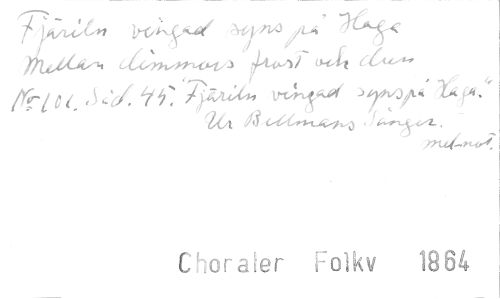 Fjäriln vingad syns på Haga
Mellan dimmors frost och dun
No 101. Sid. 45. "Fjäriln vingad syns på Haga."
Ur Bellmans Sånger.
mel. not.
Choraler Folkv 1864